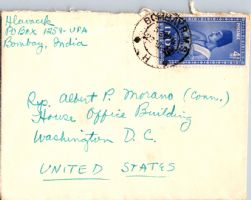 Hlavacek
PO Box 1254-UPA
Bombay, India
Rep. Albert P. Morano (Conn.)
House Office Building
Washington D. C.
UNITED STATES